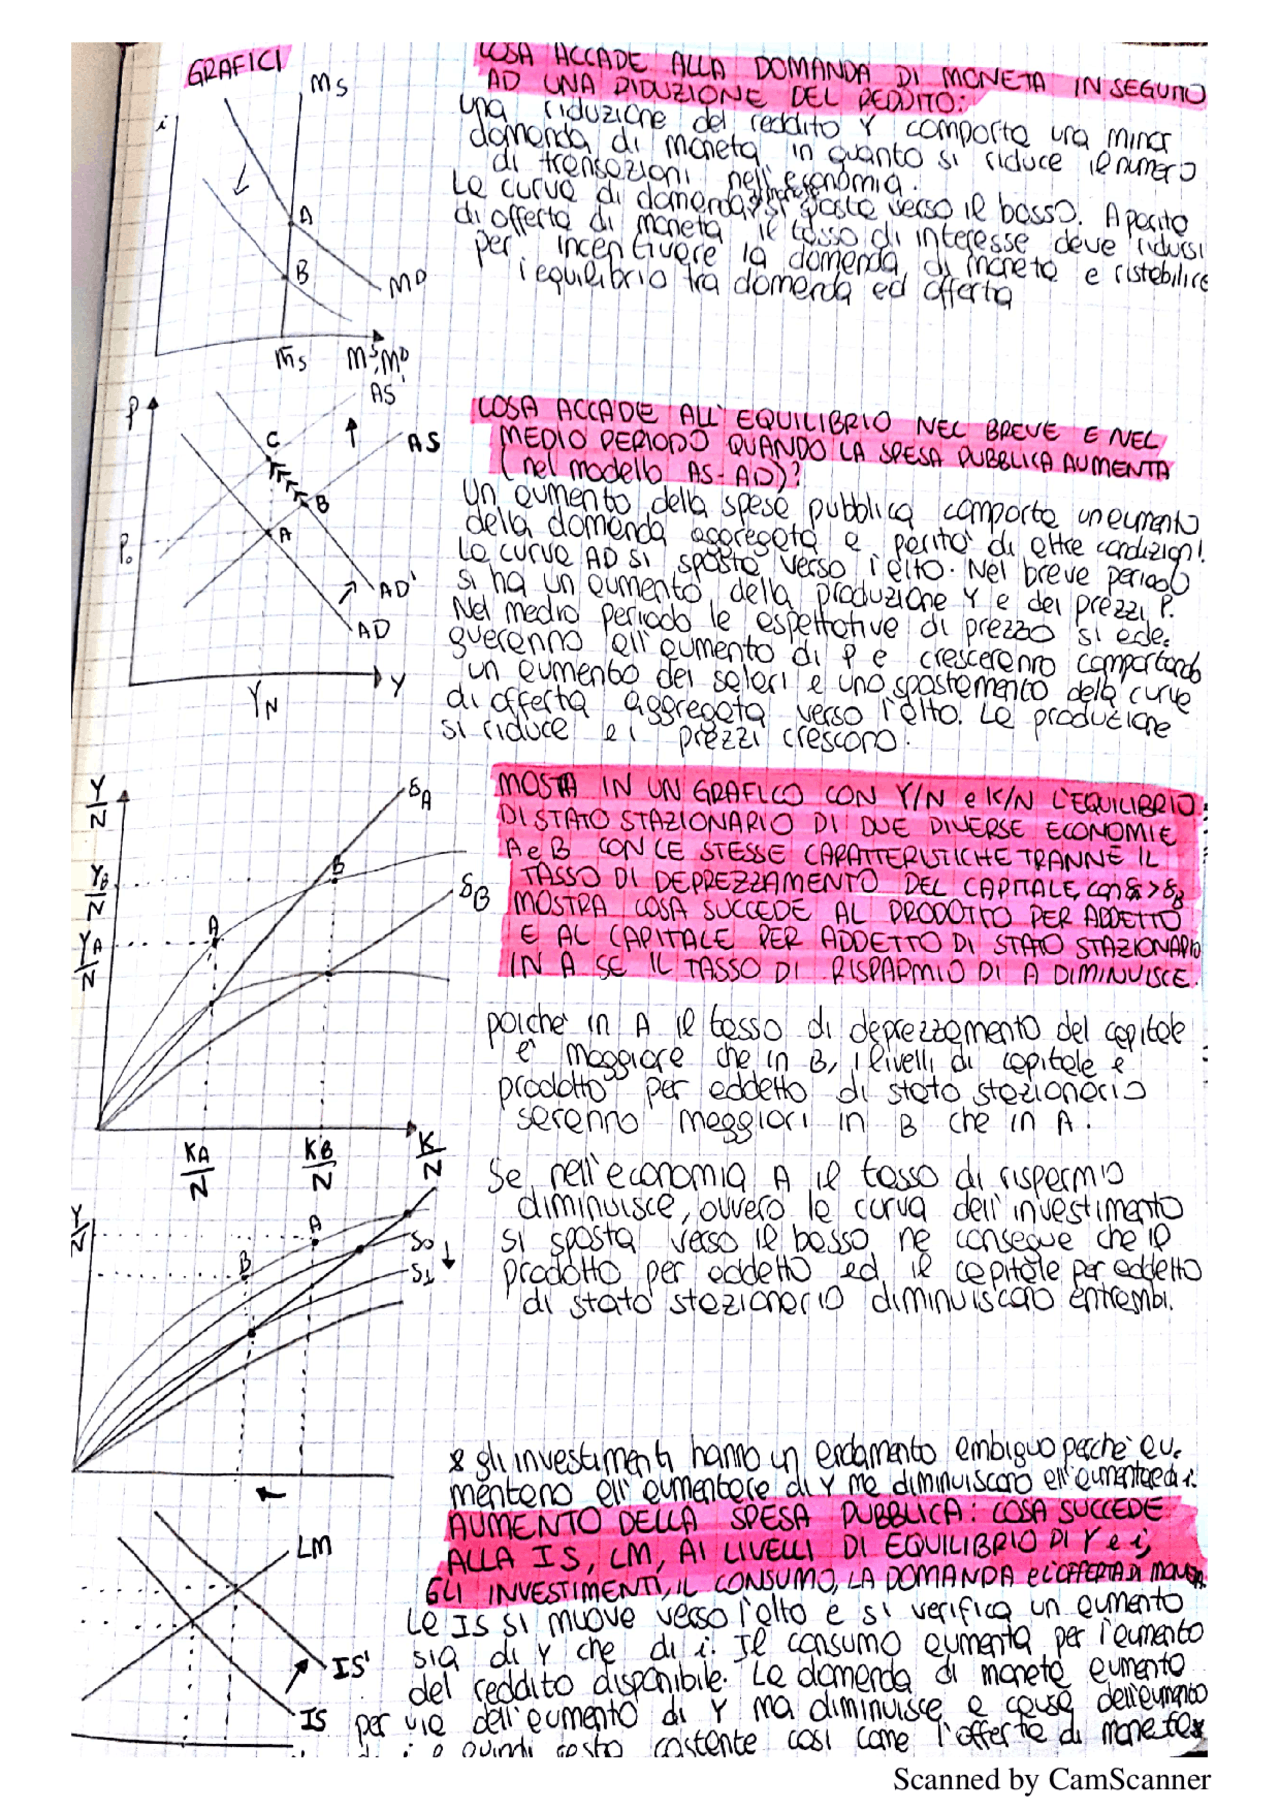 GRAFICI
COSA ACCADE ALLA DOMANDA DI MONETA IN SEGUITO
AD UNA RIDUZIONE DEL REDDITO:
una riduzione del reddito Y comporta una minor
domanda di moneta in quanto si riduce il numero
di transazioni nell'economia.
La curva di domanda di moneta si sposta verso il basso. A parità
di offerta di moneta il tasso di interesse deve ridursi
per incentivare la domanda di moneta e ristabilire
l'equilibrio tra domanda ed offerta
i
MS
A
B
MD
M̄S
MS, MD
COSA ACCADE ALL'EQUILIBRIO NEL BREVE E NEL
MEDIO PERIODO QUANDO LA SPESA PUBBLICA AUMENTA
(nel modello AS-AD)?
Un aumento della spesa pubblica comporta un aumento
della domanda aggregata a parità di altre condizioni.
La curva AD si sposta verso l'alto. Nel breve periodo
si ha un aumento della produzione Y e dei prezzi P.
Nel medio periodo le aspettative di prezzo si ade-
gueranno all'aumento di P e cresceranno comportando
un aumento dei salari e uno spostamento della curva
di offerta aggregata verso l'alto. La produzione
si riduce e i prezzi crescono.
P
AS'
AS
C
B
A
P0
AD'
AD
YN
Y
MOSTA IN UN GRAFICO CON Y/N e K/N L'EQUILIBRIO
DI STATO STAZIONARIO DI DUE DIVERSE ECONOMIE
A e B CON LE STESSE CARATTERISTICHE TRANNE IL
TASSO DI DEPREZZAMENTO DEL CAPITALE, con δA > δB
MOSTRA COSA SUCCEDE AL PRODOTTO PER ADDETTO
E AL CAPITALE PER ADDETTO DI STATO STAZIONARIO
IN A SE IL TASSO DI RISPARMIO DI A DIMINUISCE.
Y/N
δA
B
YB/N
δB
A
YA/N
KA/N
KB/N
K/N
poiché in A il tasso di deprezzamento del capitale
è maggiore che in B, i livelli di capitale e
prodotto per addetto di stato stazionario
saranno maggiori in B che in A.
Se nell'economia A il tasso di risparmio
diminuisce, ovvero la curva dell'investimento
si sposta verso il basso ne consegue che il
prodotto per addetto ed il capitale per addetto
di stato stazionario diminuiscano entrambi.
Y/N
A
B
S0
S1
* gli investimenti hanno un andamento ambiguo perché au-
mentano all'aumentare di Y ma diminuiscono all'aumentare di i.
AUMENTO DELLA SPESA PUBBLICA: COSA SUCCEDE
ALLA IS, LM, AI LIVELLI DI EQUILIBRIO DI Y e i,
GLI INVESTIMENTI, IL CONSUMO, LA DOMANDA e L'OFFERTA DI MONETA
La IS si muove verso l'alto e si verifica un aumento
sia di Y che di i. Il consumo aumenta per l'aumento
del reddito disponibile. La domanda di moneta aumenta
per via dell'aumento di Y ma diminuisce a causa dell'aumento
di i e quindi resta costante così come l'offerta di moneta*
LM
IS'
IS
Scanned by CamScanner